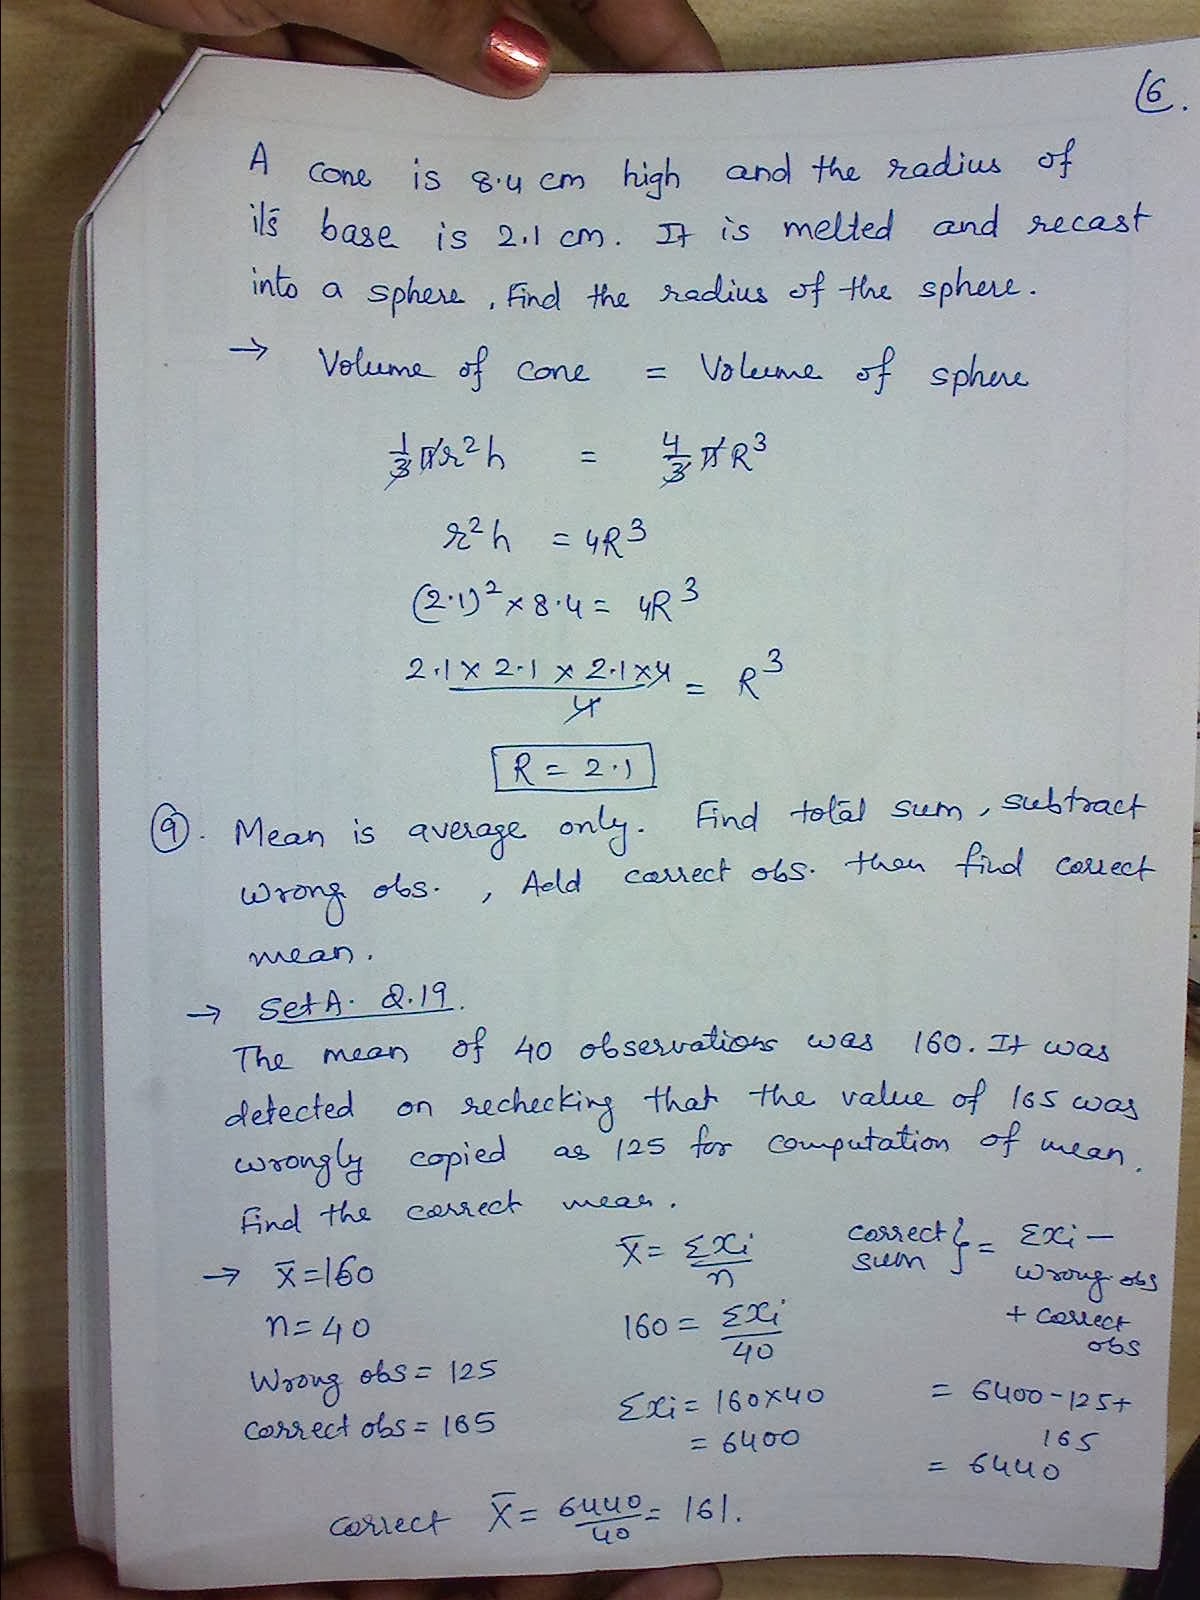 6.
A cone is 8.4 cm high and the radius of
its base is 2.1 cm. It is melted and recast
into a sphere, Find the radius of the sphere.
→ Volume of cone = Volume of sphere
1/3 πr²h = 4/3 πR³
r²h = 4R³
(2.1)² × 8.4 = 4R³
2.1 × 2.1 × 2.1 × 4 / 4 = R³
R = 2.1
9. Mean is average only. Find total sum, subtract
wrong obs. , Add correct obs. then find correct
mean.
→ Set A. Q.19.
The mean of 40 observations was 160. It was
detected on rechecking that the value of 165 was
wrongly copied as 125 for computation of mean.
Find the correct mean.
→ x̄ = 160
n = 40
Wrong obs = 125
Correct obs = 165
x̄ = Σxi / n
160 = Σxi / 40
Σxi = 160×40
= 6400
correct sum } = Σxi –
wrong obs
+ correct
obs
= 6400 - 125 +
165
= 6440
correct x̄ = 6440 / 40 = 161.